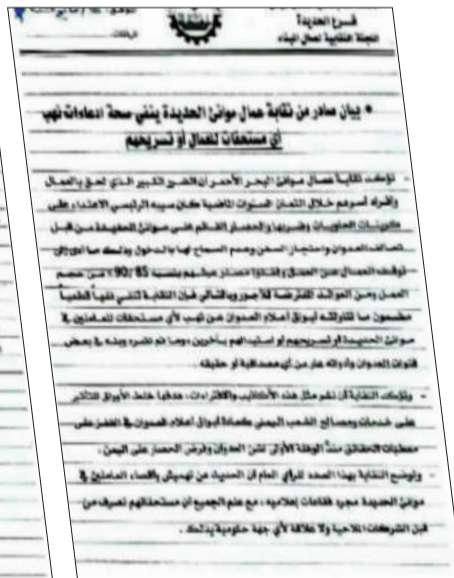 فرع الحديدة
اللجنة النقابية لعمال الميناء
• بيان صادر من نقابة عمال موانئ الحديدة ينفي صحة ادعاءات نهب
أي مستحقات للعمال أو تسريحهم
- تؤكد نقابة عمال موانئ البحر الأحمر أن الضرر الكبير الذي لحق بالعمال
وأفراد أسرهم خلال الثمان السنوات الماضية كان سببه الرئيسي الاعتداء على
كرينات الحاويات وضربها والحصار القائم على موانئ الحديدة من قبل
تحالف العدوان واحتجاز السفن وعدم السماح لها بالدخول وذلك ما أدى إلى
توقف العمال عن العمل وفقدوا مصدر عيشهم بنسبة 85/ 90٪ من حجم
العمل ومن العوائد المفترضة للأجور وبالتالي فإن النقابة تنفي نفياً قطعياً
مضمون ما تناولته أبواق أعلام العدوان عن نهب لأي مستحقات للعاملين في
موانئ الحديدة أو تسريحهم أو استبدالهم بآخرين، وما تم نشره وبثه في بعض
قنوات العدوان وأدواته عار من أي مصداقية أو حقيقة .
- وتؤكد النقابة أن نشر مثل هذه الأكاذيب والافتراءات، هدفها خلط الأوراق للتأثير
على خدمات ومصالح الشعب اليمني كعادة أبواق أعلام العدوان في القفز على
معطيات الحقائق منذ الوهلة الأولى لشن العدوان وفرض الحصار على اليمن .
- وتوضح النقابة بهذا الصدد للرأي العام أن الحديث عن تهميش وإقصاء العاملين في
موانئ الحديدة مجرد فقاعات إعلامية ، مع علم الجميع أن مستحقاتهم تصرف من
قبل الشركات الملاحية ولا علاقة لأي جهة حكومية بذلك .